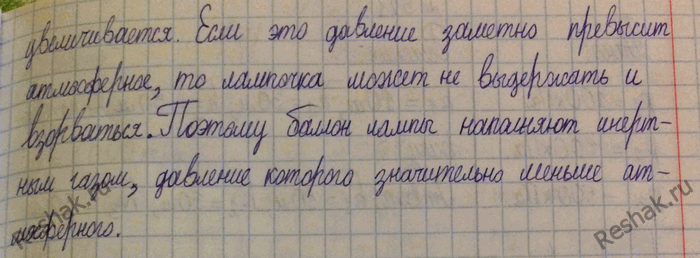 увеличивается. Если это давление заметно превысит
атмосферное, то лампочка может не выдержать и
взорваться. Поэтому баллон лампы наполняют инерт-
ным газом, давление которого значительно меньше ат-
мосферного.
Reshak.ru
Reshak.ru